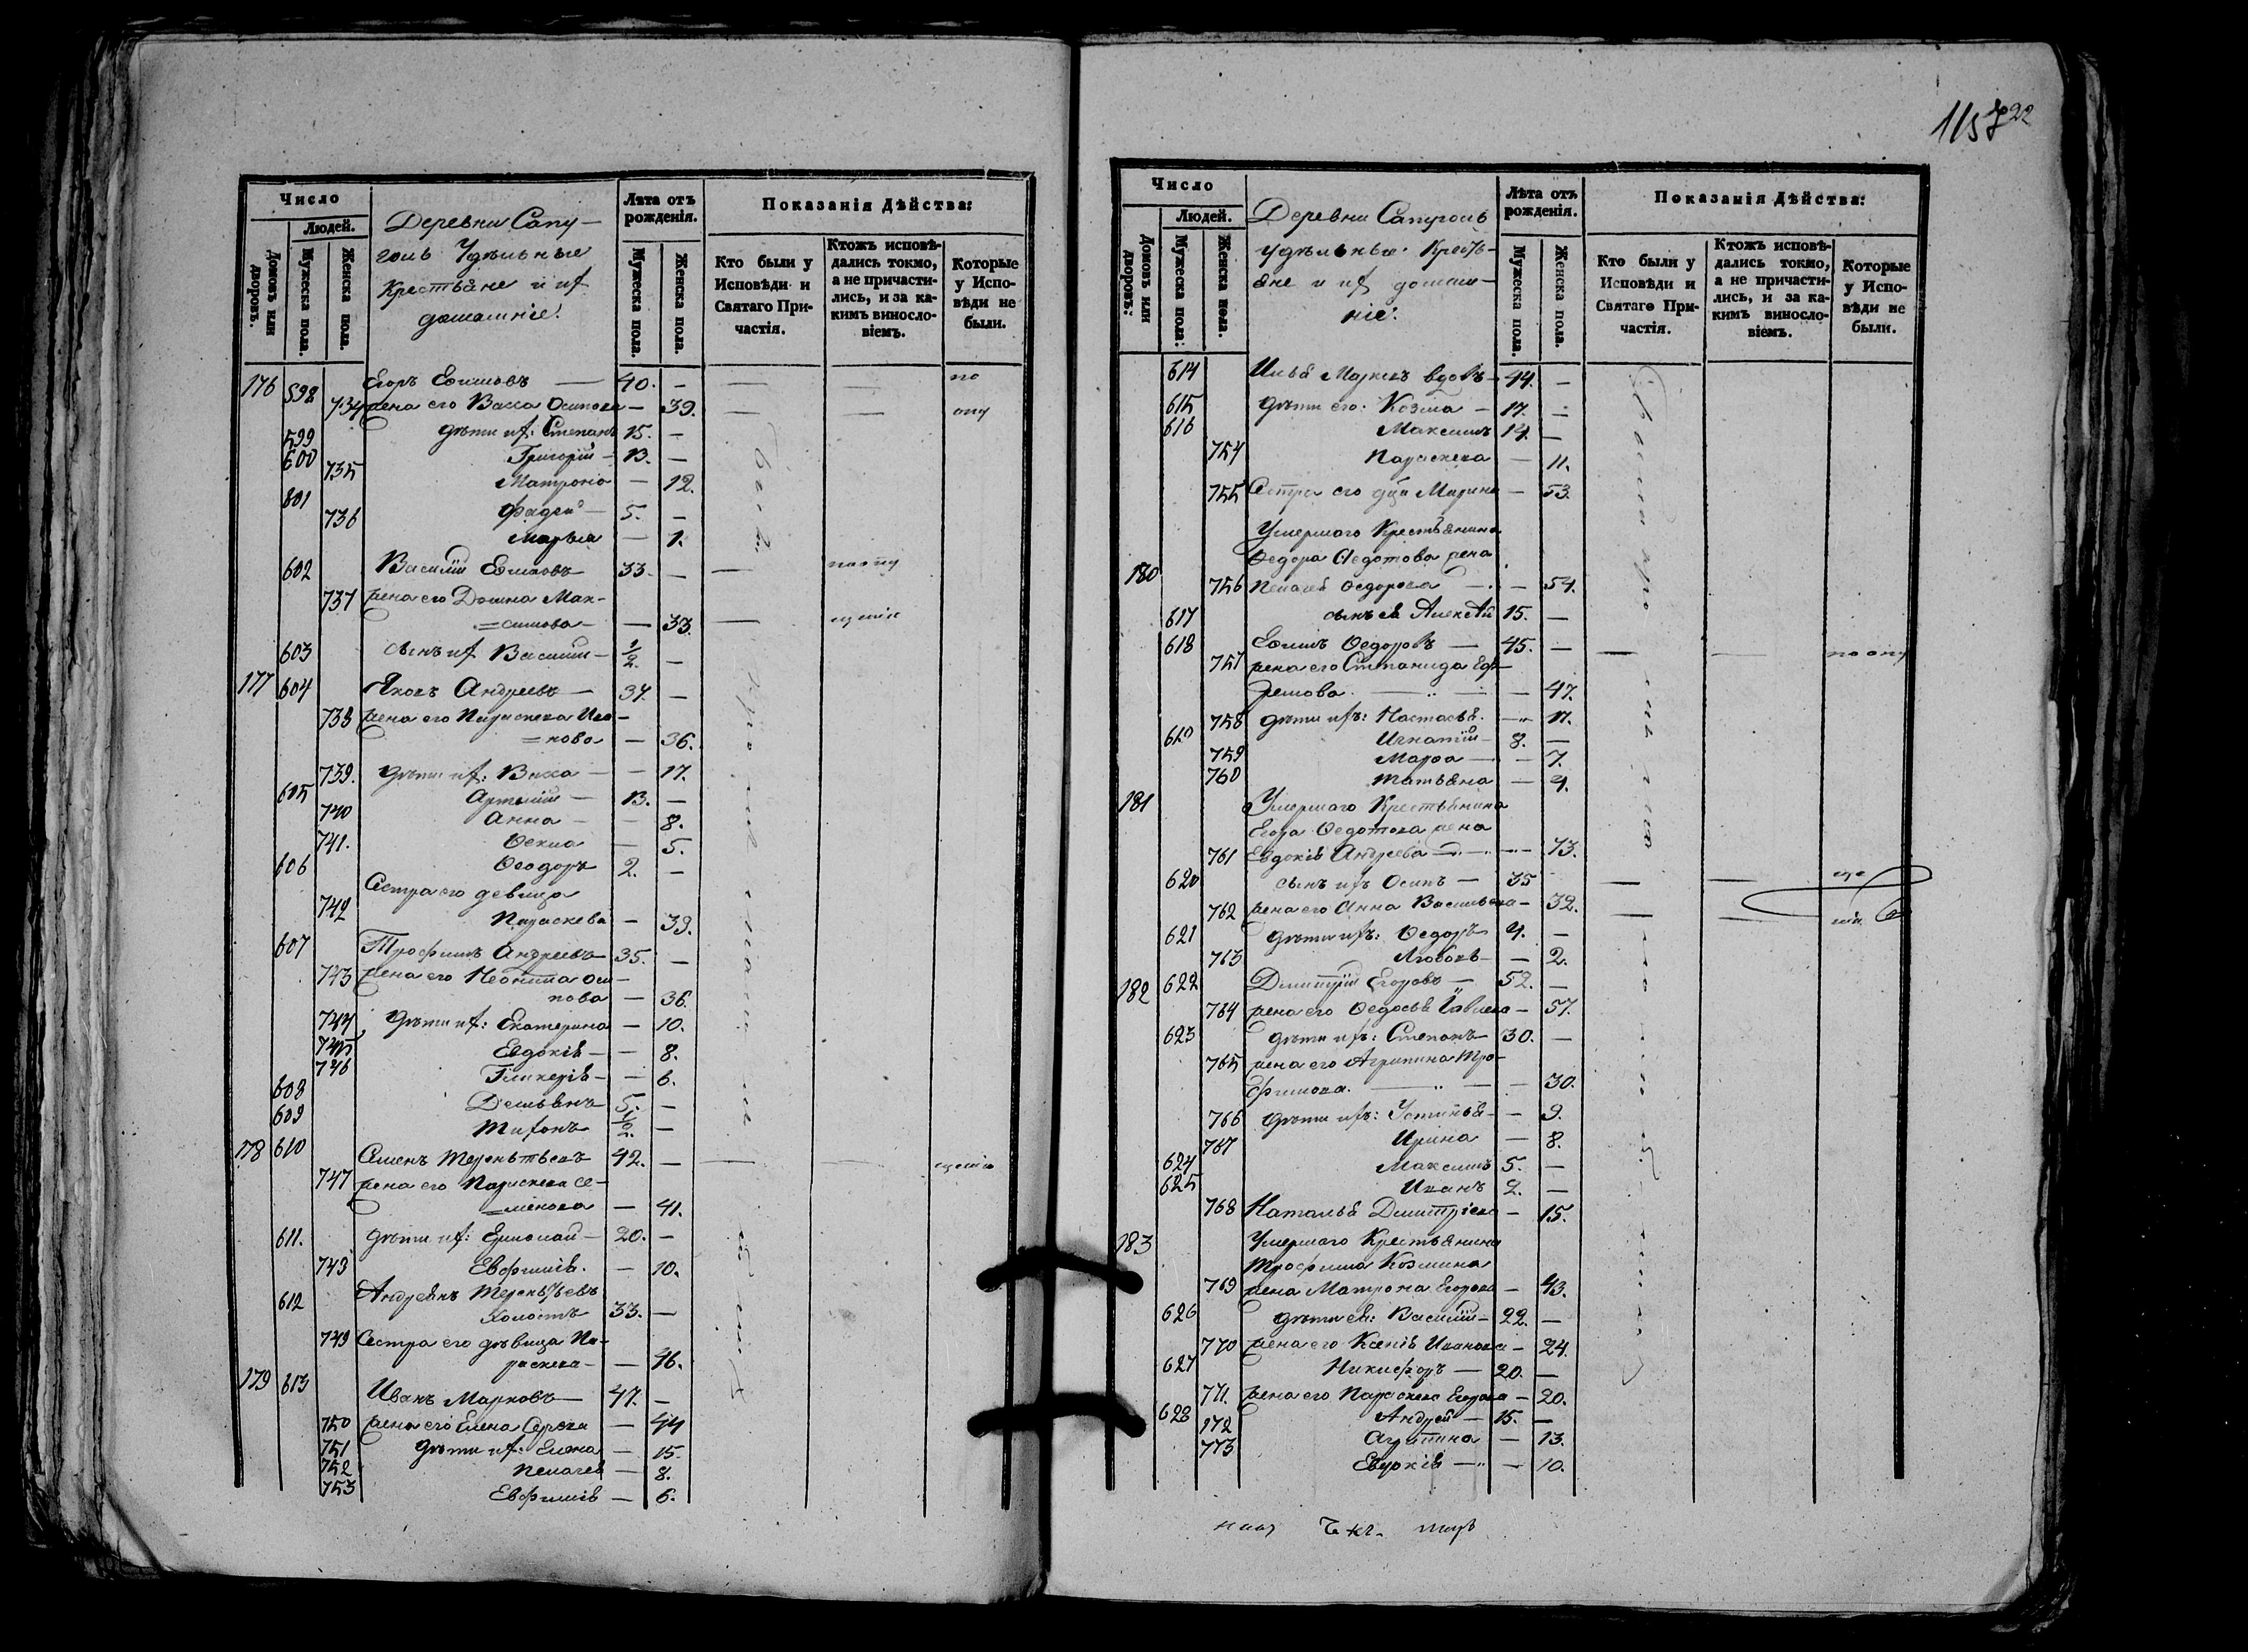 Число
Людей.
Домовъ или дворовъ.
Мужеска пола.
Женска пола.
Деревни Сапу-
голь Удѣльные
Крестьяне и их
домашніе.
Лѣта отъ рожденія.
Мужеска пола.
Женска пола.
Показанія Дѣйства:
Кто были у Исповѣди и Святаго Причастія.
Ктожъ исповѣдались токмо, а не причастились, и за какимъ винословіемъ.
Которые у Исповѣди не были.
176 598 Егоръ Ефимовъ — 40. — по
734 жена его Васса Осипова — 39. опу
599 дѣти их: Степанъ 15. —
600 Григорій — 13. —
735 Матрона — 12.
601 Фадей — 5. —
736 Марья — 1.
602 Василій Ефимовъ 33. — по опу
737 жена его Домна Мак-
=симова — — 33. щенію
603 сынъ их Василій — 1/2. —
177 604 Яковъ Андреевъ — 37. —
738 жена его Параскева Ива-
=нова — 36.
739. дѣти их: Васса — — 17.
605 Артемій — 13. —
740 Анна — — 8.
741. Фекла — 5.
606 Феодоръ 2. —
Сестра его девица
742 Параскева — 39.
607 Трофимъ Андреевъ 35. —
743 жена его Неонила Оси-
пова — 36.
744 дѣти их: Екатерина — 10.
745 Евдокія — — 8.
746 Гликерія — — 6.
608 Демьянъ 5. —
609 Тихонъ 1/2. —
178 610 Семенъ Терентьевъ 42. — щенію
747 жена его Параскева Се-
=менова — 41.
611. дѣти их: Ермолай — 20. —
748 Евфимія. — 10.
612 Андреянъ Терентьевъ
холостъ 33. —
749 Сестра его дѣвица Па-
раскева — — 46.
179 613 Иванъ Марковъ — 47. —
750 жена его Елена Сергѣева — 44
751 дѣти их: Елена — 15.
752 Пелагея — 8.
753 Евфимія — 6.
115 7 22
Число
Людей.
Домовъ или дворовъ:
Мужеска пола:
Женска пола.
Деревни Сапуголь
Удѣльные Кресть-
яне и их домаш-
ніе.
Лѣта отъ рожденія.
Мужеска пола.
Женска пола.
Показанія Дѣйства:
Кто были у Исповѣди и Святаго Причастія.
Ктожъ исповѣдались токмо, а не причастились, и за какимъ винословіемъ.
Которые у Исповѣди не были.
614 Илья Марковъ вдовъ — 44. —
615 дѣти его: Козма — 17. —
616 Максимъ 14. —
754 Параскева — 11.
755 Сестра его дца Марина — 53.
Умершаго Крестьянина
180 Федора Федотова жена
756 Пелагея Федорова — — 54.
617 сынъ ея Алексѣй 15. —
618 Ефимъ Федоровъ — 45. — по опу
757 жена его Степанида Еф-
ремова. — 47.
758 дѣти ихъ: Настасья. — 17.
619 Игнатій — 8. —
759 Марфа — — 7.
760 Татьяна — 4.
181 Умершаго Крестьянина
Егора Федотова жена
761 Евдокія Андреева — — 73.
620 сынъ ихъ Осипъ — 35
762 жена его Анна Васильева — 32.
621 дѣти ихъ: Федоръ 4. —
763 Любовь — — 2.
182 622 Дмитрій Егоровъ — 52. —
764 жена его Федосья Iовлева — 57.
623 дѣти ихъ: Степанъ — 30. —
765 жена его Агрипина Тро-
фимова. — 30.
766 дѣти ихъ: Устинья — — 9.
767 Ирина — 8.
624 Максимъ 5. —
625 Иванъ 2. —
768 Наталья Дмитріева — 15.
183 Умершаго Крестьянина
Трофима Козмина
769 жена Матрона Егорова — 43.
626 дѣти ея: Василій — 22. —
770 жена его Ксенія Иванова — 24.
627 Никифоръ — 20. —
771. жена его Параскева Егорова — 20.
628 Андрей — 15. —
772 Агрипина — 13.
773 Евдокія — — 10.